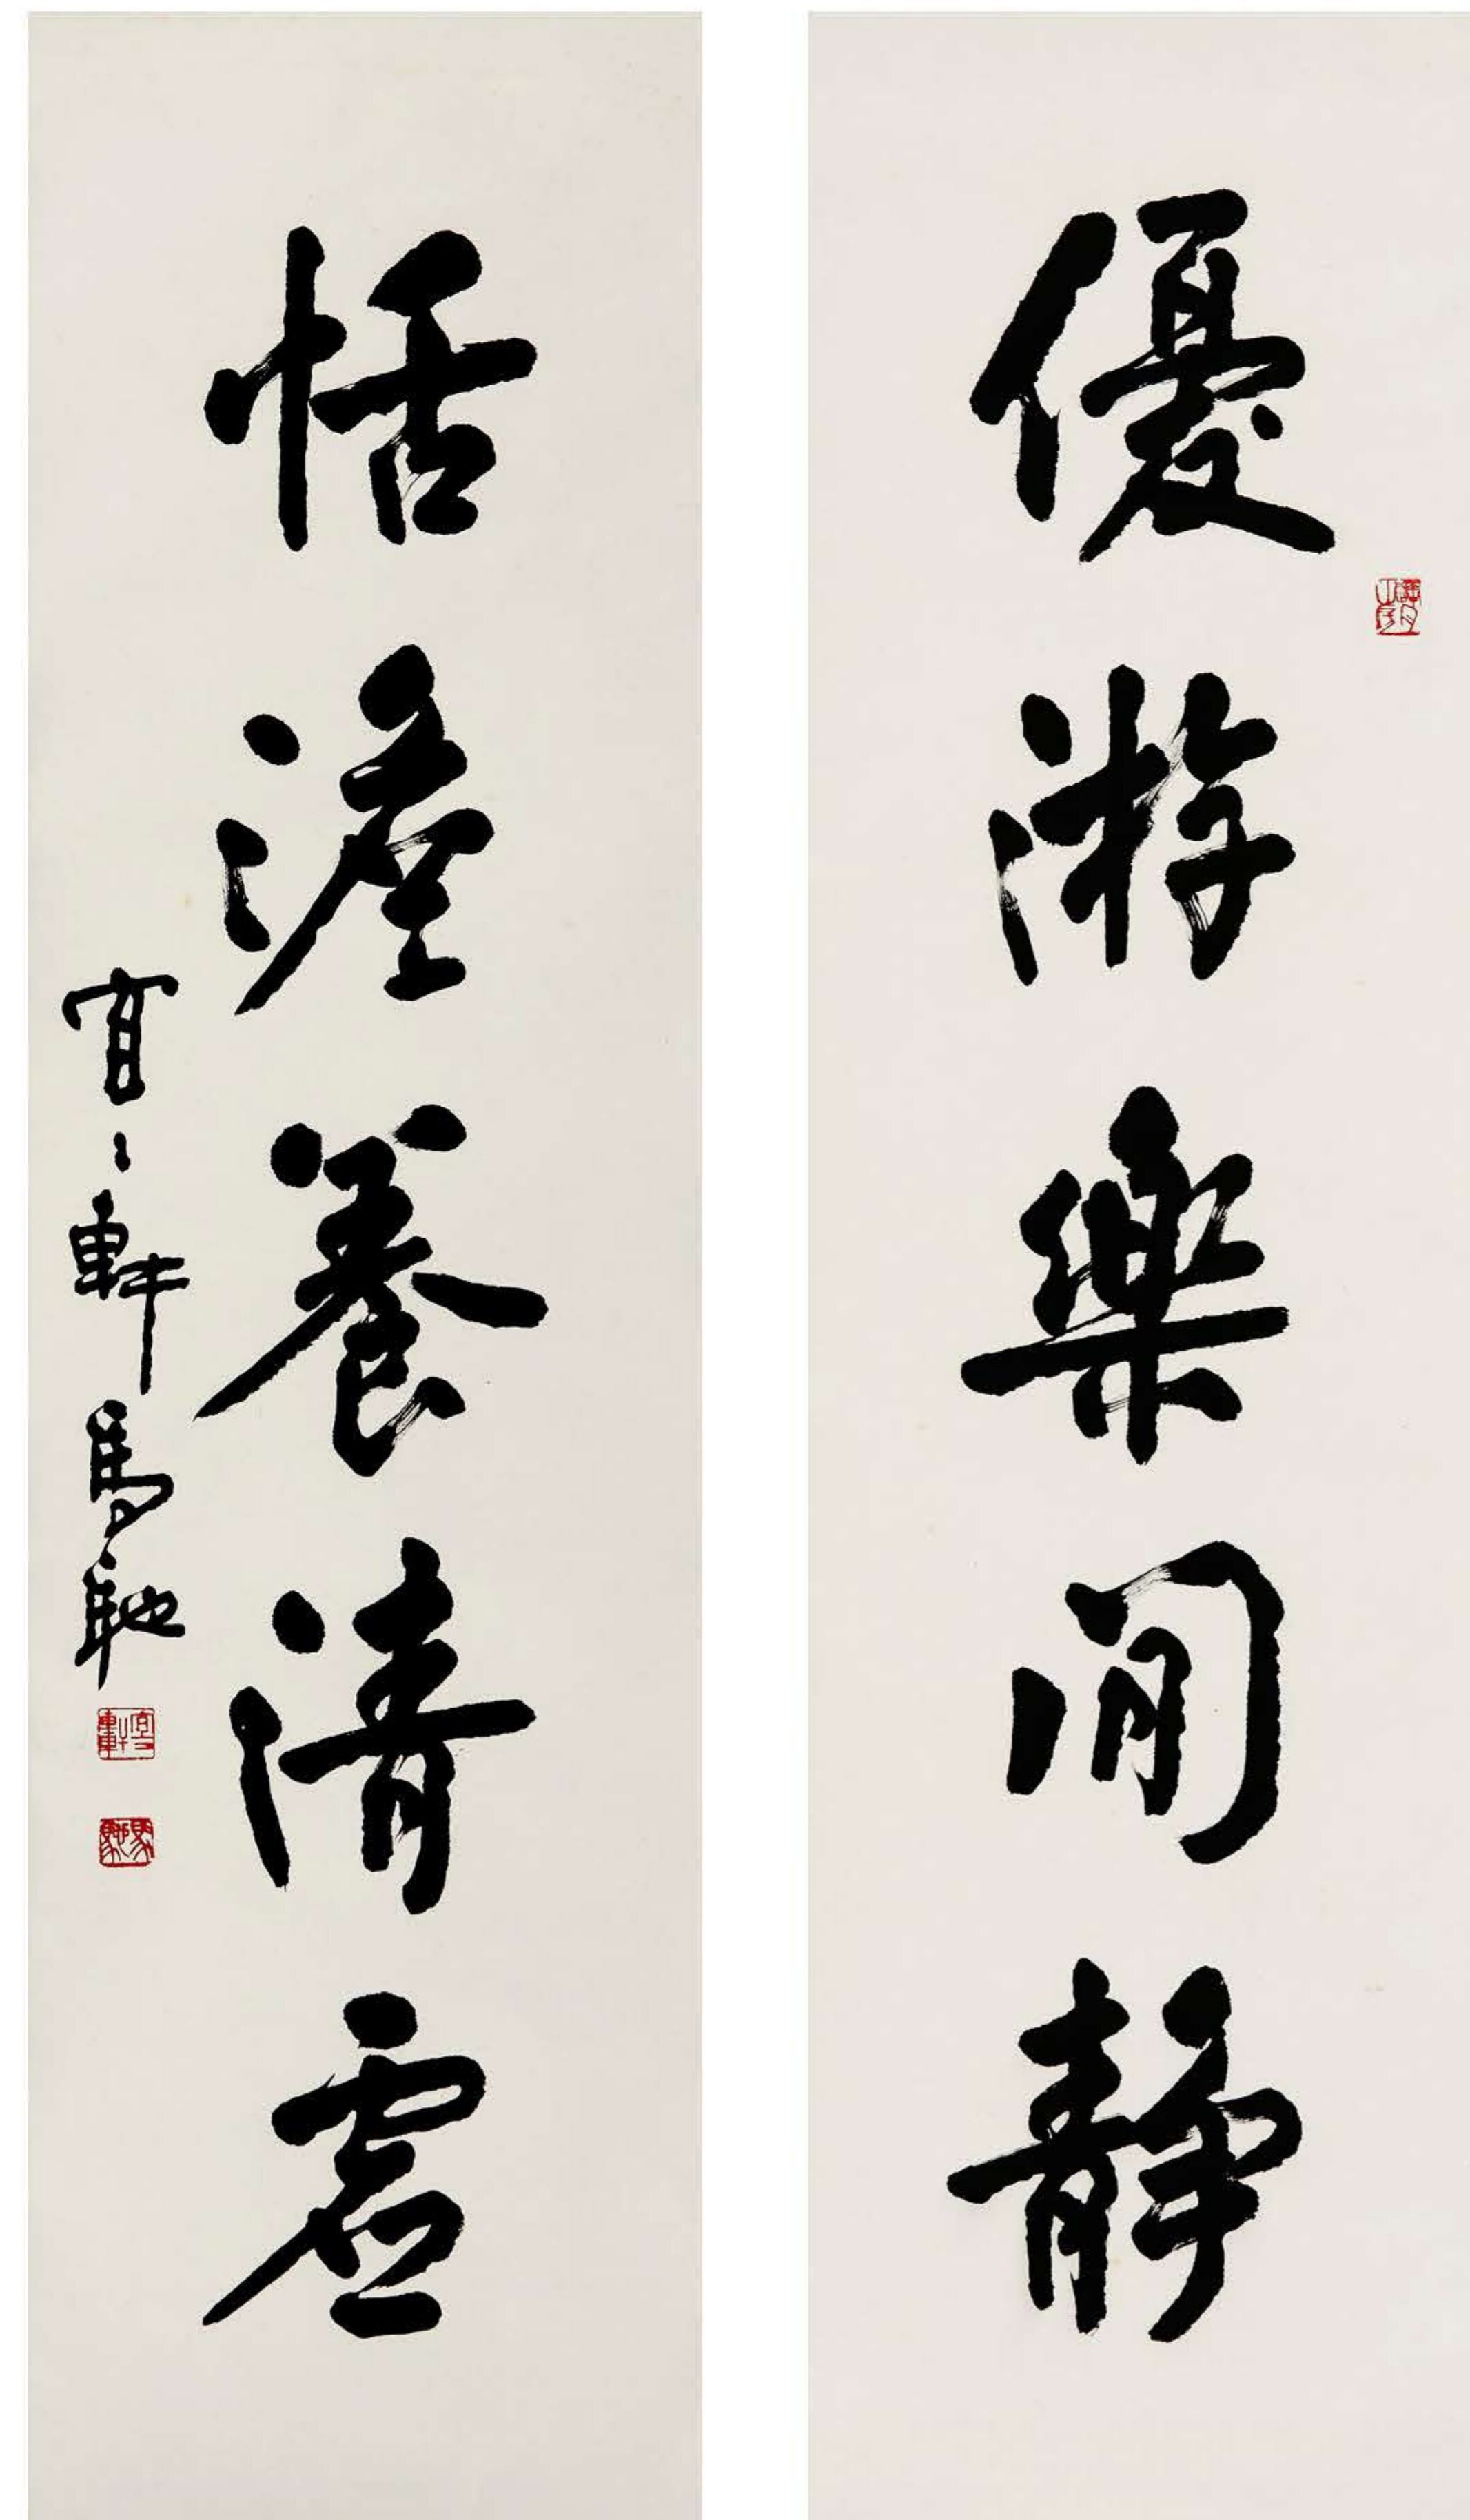 優游樂閒靜
恬澹養清虛
宜〻軒馬馳